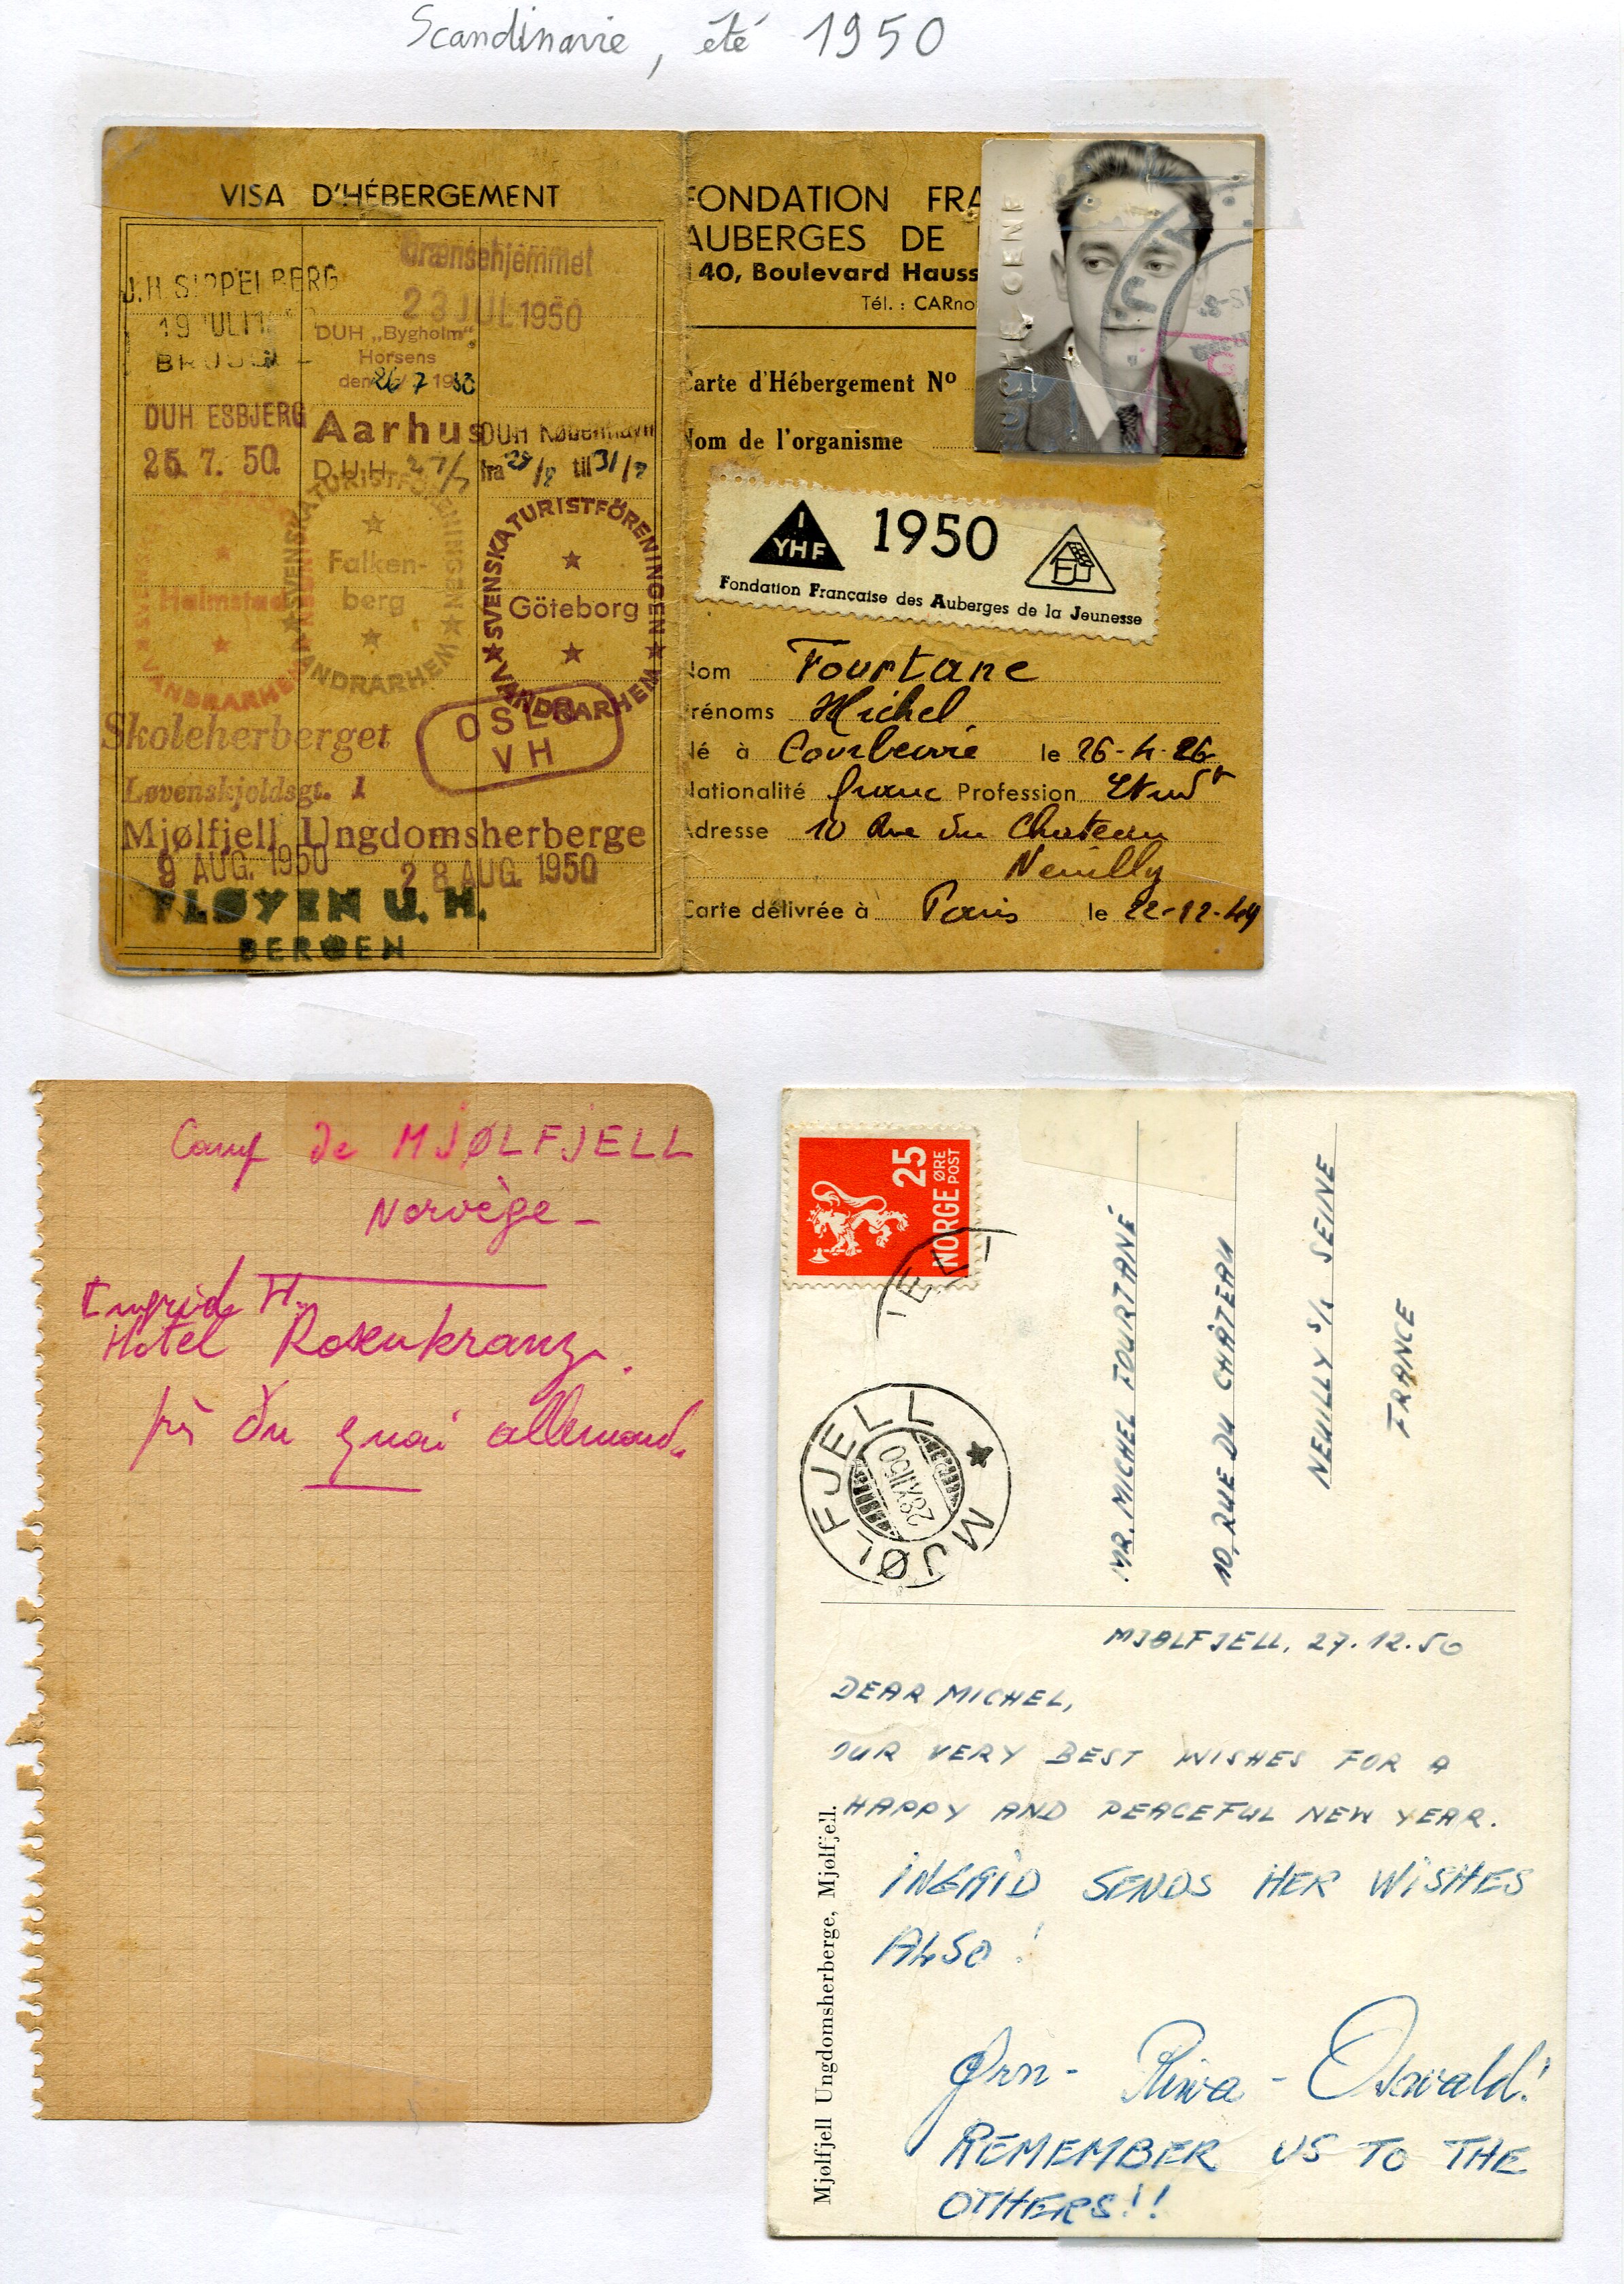 Scandinavie, été 1950
VISA D'HÉBERGEMENT
J.H SIPPELBERG
19 JULI
Grænsehjemmet
23 JUL 1950
DUH „Bygholm“
Horsens
den 26/7 1950
DUH ESBJERG
25. 7. 50.
Aarhus
D.U.H. 27/7
DUH København
fra til 31/7
SVENSKA TURISTFÖRENINGEN
Halmstad
VANDRARHEM
SVENSKA TURISTFÖRENINGEN
Falken-
berg
VANDRARHEM
SVENSKA TURISTFÖRENINGEN
Göteborg
VANDRARHEM
OSLO
VH
Skoleherberget
Løvenskjoldsgt. 1
Mjølfjell Ungdomsherberge
9 AUG. 1950 28 AUG. 1950
FLØYEN U. H.
BERGEN
FONDATION FRA
AUBERGES DE
140, Boulevard Hauss
Tél. : CARno
Carte d'Hébergement Nº
Nom de l'organisme
I
YHF
1950
Fondation Française des Auberges de la Jeunesse
Nom Fourtane
rénoms Michel
Né à Courbevoie le 26-4-26
Nationalité franc Profession Etudt
Adresse 10 Rue du Chateau
Neuilly
Carte délivrée à Paris le 22-12-49
Camp de MJØLFJELL
Norvège -
Ingrid H.
Hotel Rosenkranz.
près du quai allemand.
25
ØRE
POST
NORGE
MJØLFJELL
28 XII 50
MR. MICHEL FOURTANÉ
10, RUE DU CHÂTEAU
NEUILLY S/ SEINE
FRANCE
MJØLFJELL, 27.12.50
DEAR MICHEL,
OUR VERY BEST WISHES FOR A
HAPPY AND PEACEFUL NEW YEAR.
INGRID SENDS HER WISHES
ALSO!
Ørn - - Oswald!
REMEMBER US TO THE
OTHERS!!
Mjølfjell Ungdomsherberge, Mjølfjell.